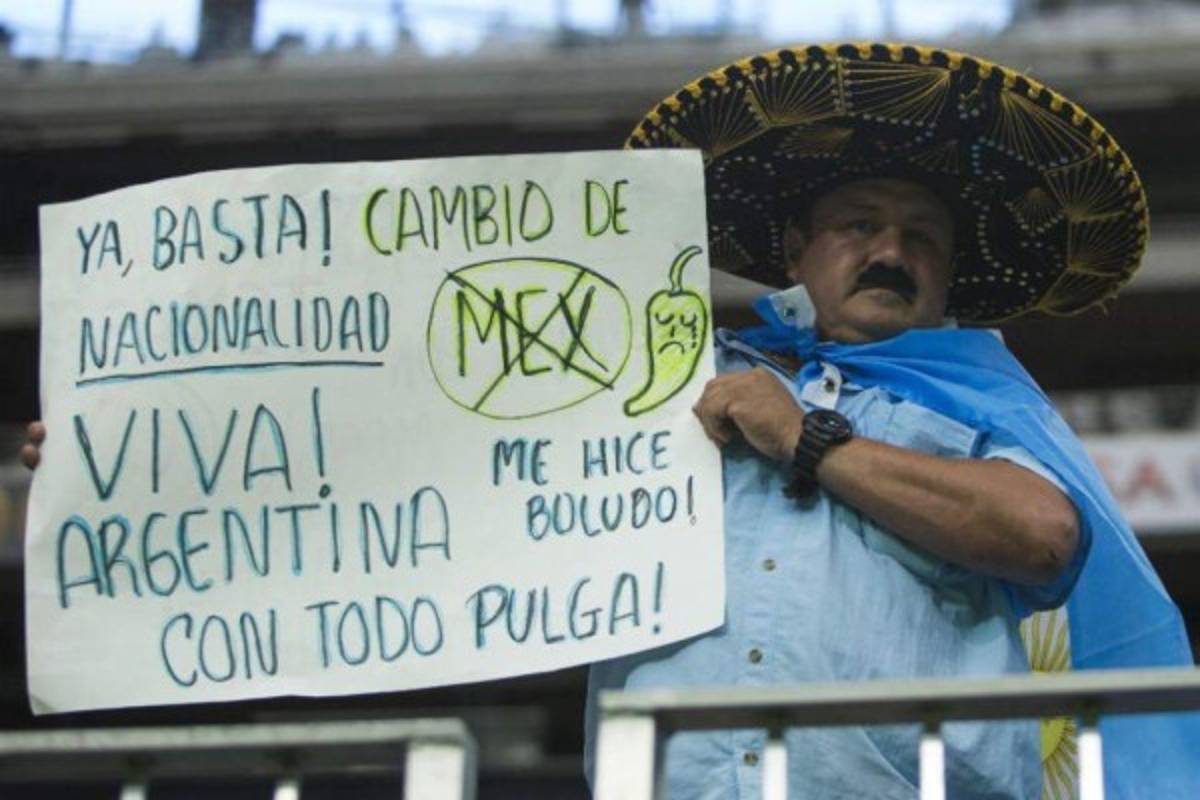 YA, BASTA! CAMBIO DE
NACIONALIDAD MEX
VIVA! ME HICE
ARGENTINA BOLUDO!
CON TODO PULGA!